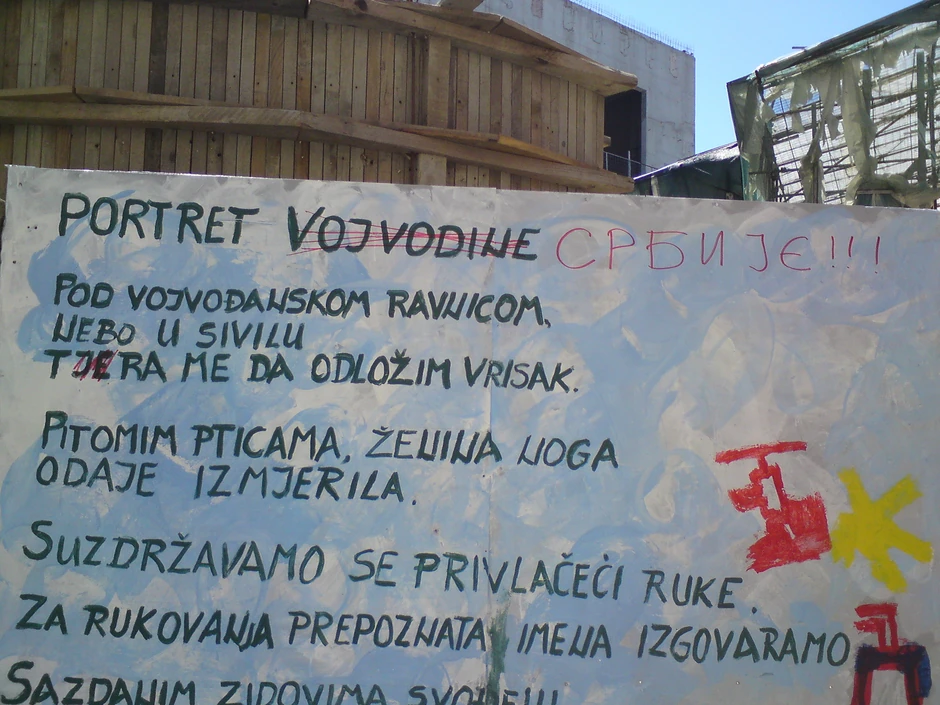 PORTRET VOJVODINE СРБИЈЕ!!!
POD VOJVOĐANSKOM RAVNICOM,
NEBO U SIVILU
TJERA ME DA ODLOŽIM VRISAK.
PITOMIM PTICAMA, ŽENINA NOGA
ODAJE IZMJERILA.
SUZDRŽAVAMO SE PRIVLAČEĆI RUKE.
ZA RUKOVANJA PREPOZNATA IMENA IZGOVARAMO
SAZDANIM ZIDOVIMA